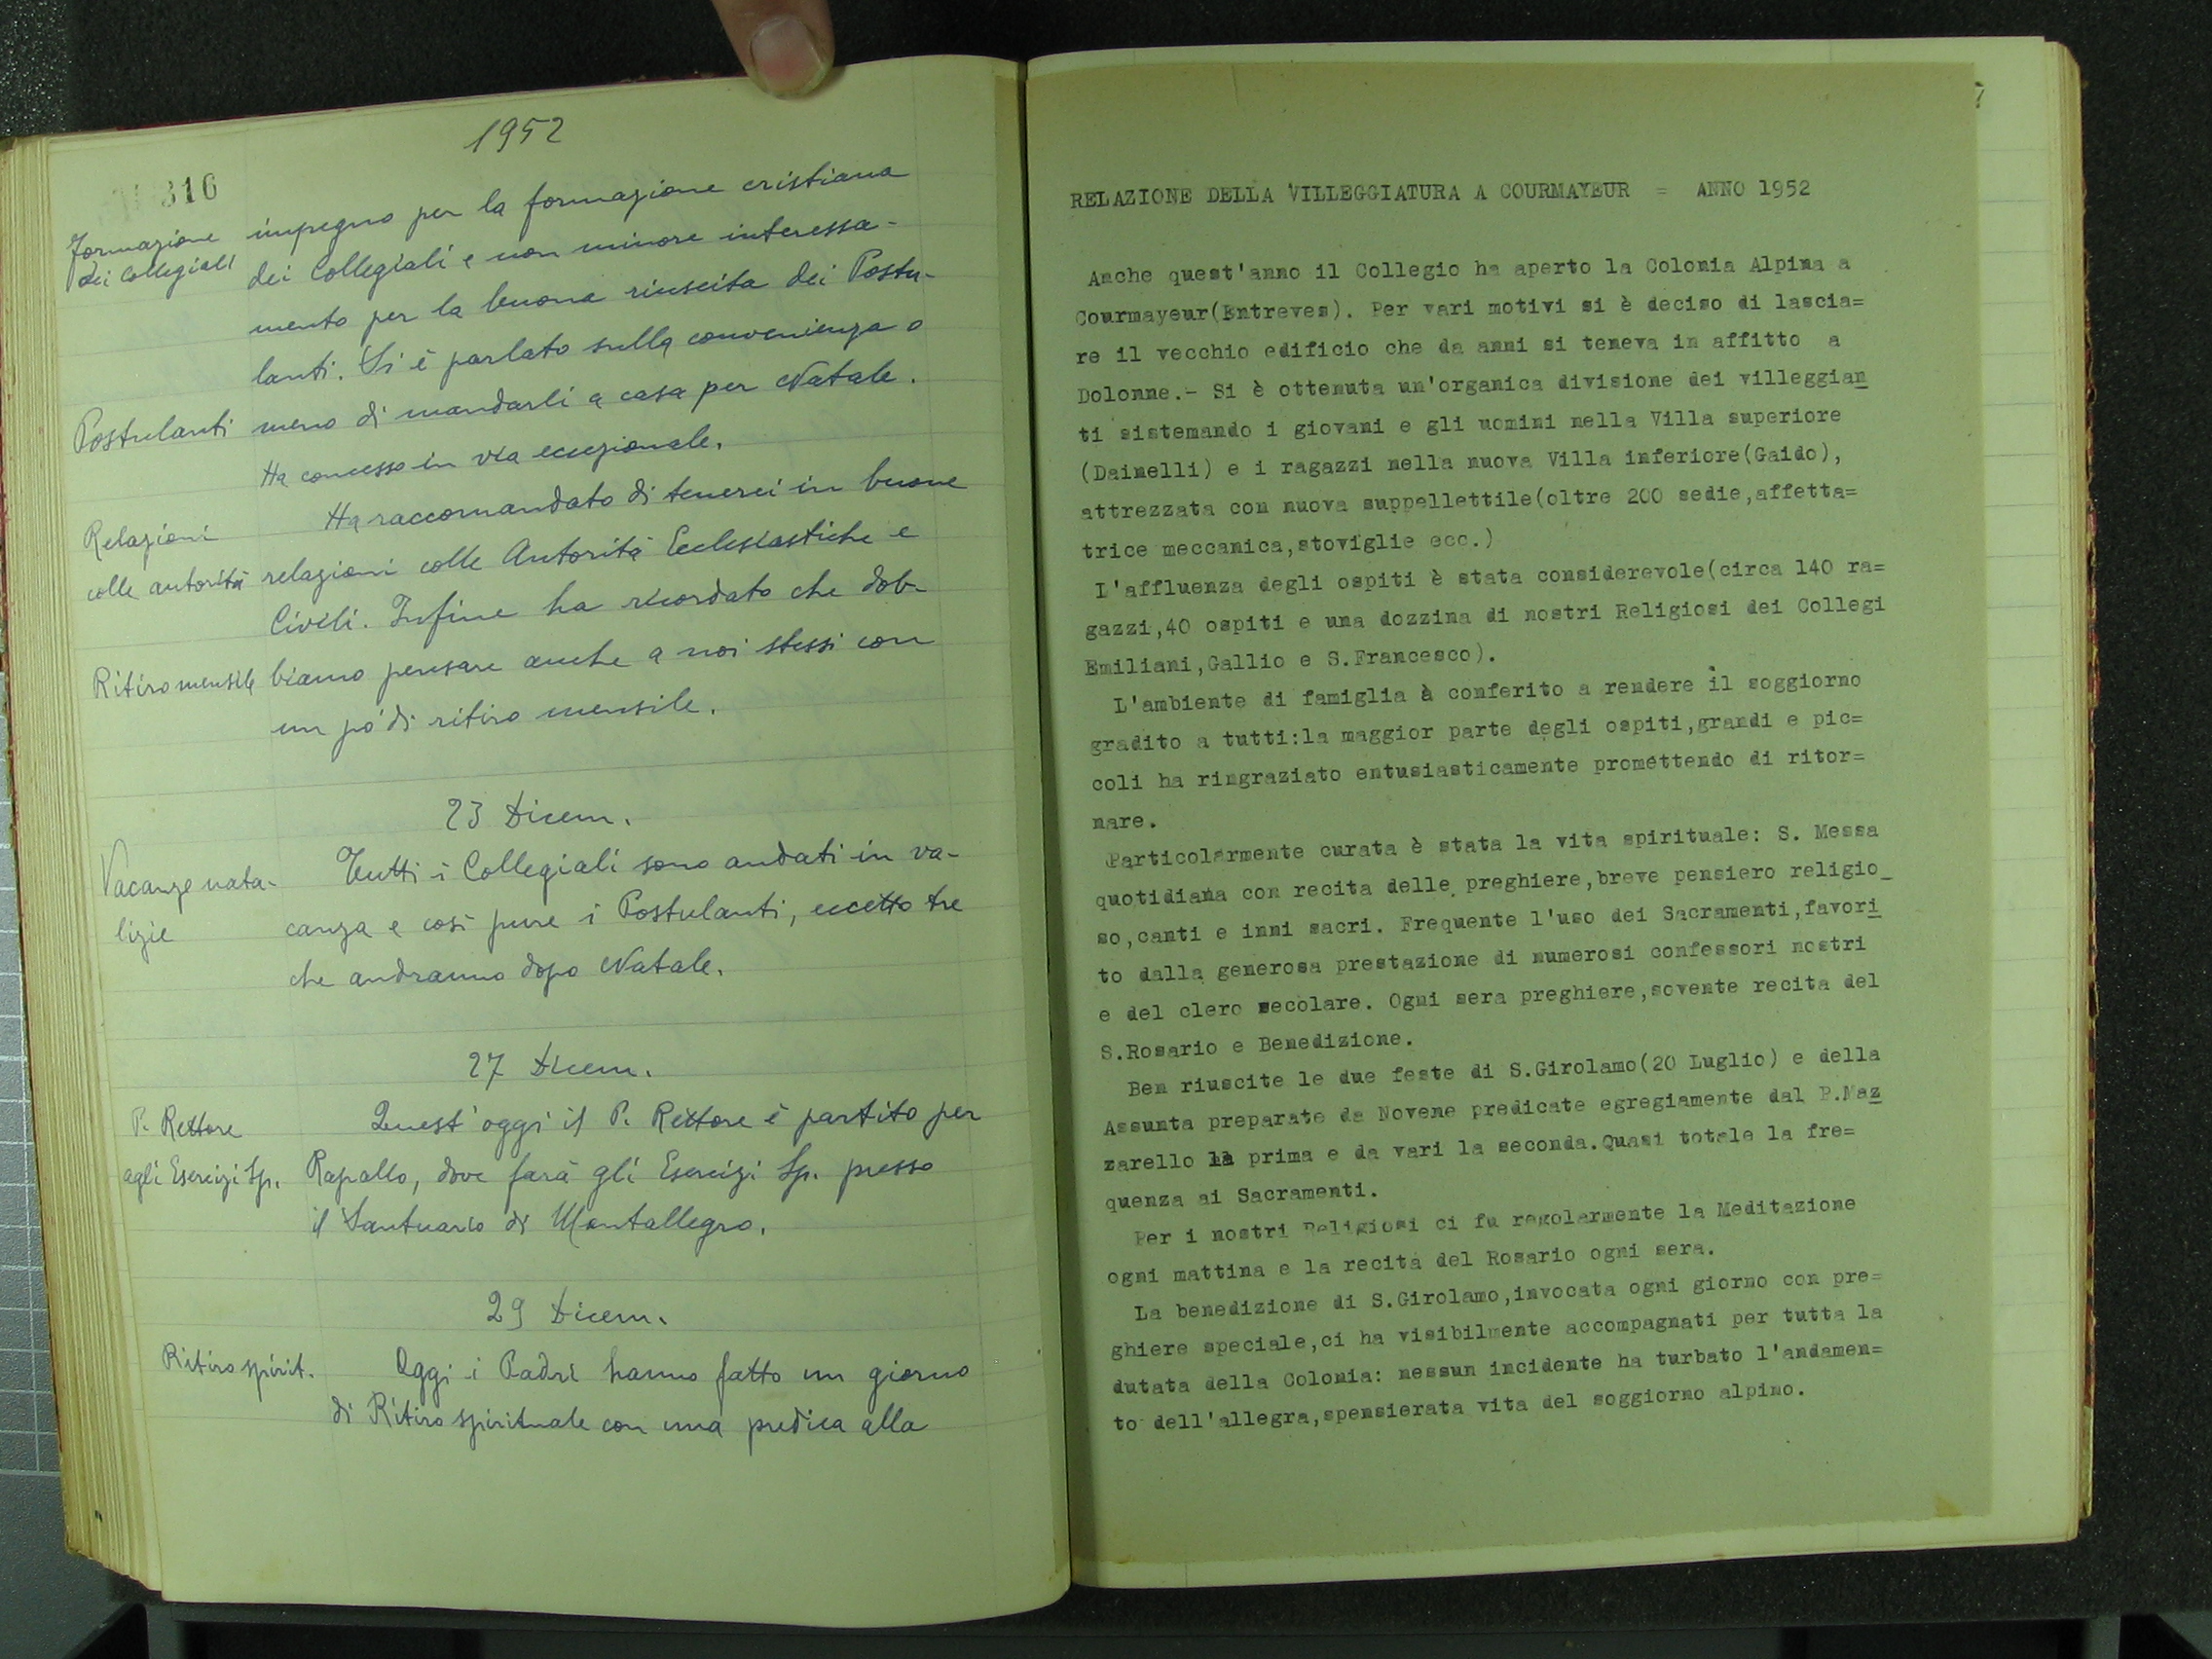 1952
316
Formazione
dei Collegiali
impegno per la formazione cristiana
dei Collegiali e non minore interessa-
mento per la buona riuscita dei Postu-
lanti. Si è parlato sulla convenienza o
Postulanti
meno di mandarli a casa per Natale.
Ha concesso in via eccezionale.
Relazioni
colle autorità
Ha raccomandato di tenerci in buone
relazioni colle Autorità Ecclesiastiche e
Civili. Infine ha ricordato che dob-
Ritiro mensile
biamo pensare anche a noi stessi con
un pò di ritiro mensile.
23 Dicem.
Vacanze nata-
lizie
Tutti i Collegiali sono andati in va-
canza e così pure i Postulanti, eccetto tre
che andranno dopo Natale.
27 Dicem.
P. Rettore
agli Esercizi Sp.
Quest'oggi il P. Rettore è partito per
Rapallo, dove farà gli Esercizi Sp. presso
il Santuario di Montallegro.
29 Dicem.
Ritiro spirit.
Oggi i Padri hanno fatto un giorno
di Ritiro spirituale con una predica alla
7
RELAZIONE DELLA VILLEGGIATURA A COURMAYEUR = ANNO 1952
Anche quest'anno il Collegio ha aperto la Colonia Alpina a
Courmayeur(Entreves). Per vari motivi si è deciso di lascia=
re il vecchio edificio che da anni si teneva in affitto a
Dolonne.- Si è ottenuta un'organica divisione dei villeggian
ti sistemando i giovani e gli uomini nella Villa superiore
(Dainelli) e i ragazzi nella nuova Villa inferiore(Gaido),
attrezzata con nuova suppellettile(oltre 200 sedie,affetta=
trice meccanica,stoviglie ecc.)
L'affluenza degli ospiti è stata considerevole(circa 140 ra=
gazzi,40 ospiti e una dozzina di nostri Religiosi dei Collegi
Emiliani,Gallio e S.Francesco).
L'ambiente di famiglia à conferito a rendere il soggiorno
gradito a tutti:la maggior parte degli ospiti,grandi e pic=
coli ha ringraziato entusiasticamente promettendo di ritor=
nare.
Particolarmente curata è stata la vita spirituale: S. Messa
quotidiana con recita delle preghiere,breve pensiero religio_
so,canti e inni sacri. Frequente l'uso dei Sacramenti,favori
to dalla generosa prestazione di numerosi confessori nostri
e del clero secolare. Ogni sera preghiere,sovente recita del
S.Rosario e Benedizione.
Ben riuscite le due feste di S.Girolamo(20 Luglio) e della
Assunta preparate da Novene predicate egregiamente dal P.Maz
zarello la prima e da vari la seconda.Quasi totale la fre=
quenza ai Sacramenti.
Per i nostri Religiosi ci fu regolarmente la Meditazione
ogni mattina e la recita del Rosario ogni sera.
La benedizione di S.Girolamo,invocata ogni giorno con pre=
ghiere speciale,ci ha visibilmente accompagnati per tutta la
dutata della Colonia: nessun incidente ha turbato l'andamen=
to dell'allegra,spensierata vita del soggiorno alpino.